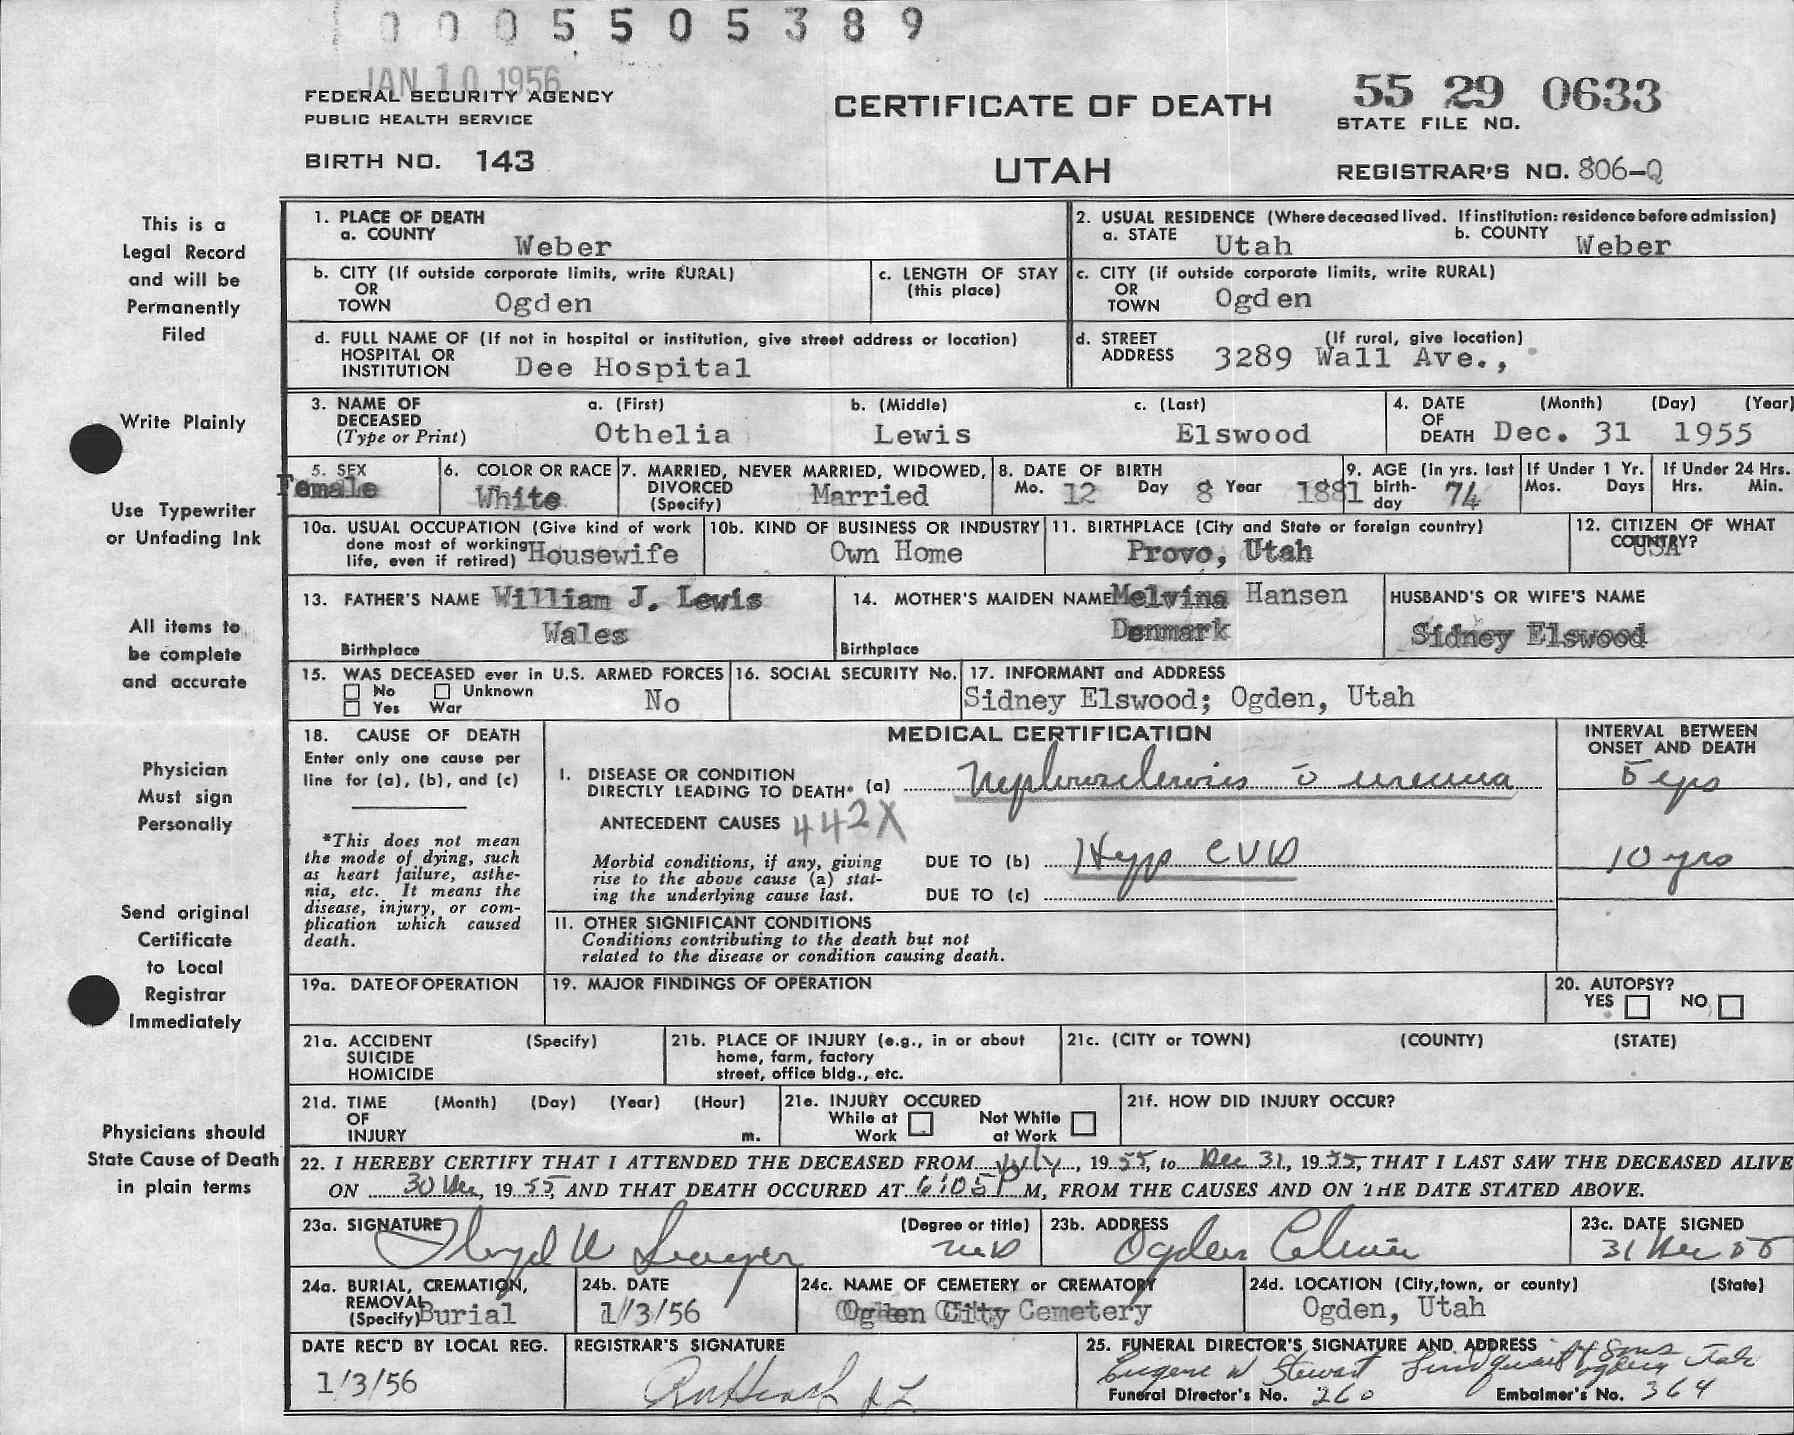 0 0 0 5 5 0 5 3 8 9
JAN 10 1956
FEDERAL SECURITY AGENCY
PUBLIC HEALTH SERVICE
BIRTH NO. 143
CERTIFICATE OF DEATH
UTAH
55 29 0633
STATE FILE NO.
REGISTRAR'S NO. 806-Q
This is a
Legal Record
and will be
Permanently
Filed
Write Plainly
Use Typewriter
or Unfading Ink
All items to
be complete
and accurate
Physician
Must sign
Personally
Send original
Certificate
to Local
Registrar
Immediately
Physicians should
State Cause of Death
in plain terms
1. PLACE OF DEATH
a. COUNTY Weber
2. USUAL RESIDENCE (Where deceased lived. If institution: residence before admission)
a. STATE Utah b. COUNTY Weber
b. CITY (If outside corporate limits, write RURAL)
OR
TOWN Ogden
c. LENGTH OF STAY
(this place)
c. CITY (if outside corporate limits, write RURAL)
OR
TOWN Ogden
d. FULL NAME OF (If not in hospital or institution, give street address or location)
HOSPITAL OR
INSTITUTION Dee Hospital
d. STREET (If rural, give location)
ADDRESS 3289 Wall Ave.,
3. NAME OF a. (First) b. (Middle) c. (Last)
DECEASED
(Type or Print) Othelia Lewis Elswood
4. DATE (Month) (Day) (Year)
OF
DEATH Dec. 31 1955
5. SEX
Female
6. COLOR OR RACE
White
7. MARRIED, NEVER MARRIED, WIDOWED,
DIVORCED
(Specify) Married
8. DATE OF BIRTH
Mo. 12 Day 8 Year 1881
9. AGE (In yrs. last
birth-
day 74
If Under 1 Yr.
Mos. Days
If Under 24 Hrs.
Hrs. Min.
10a. USUAL OCCUPATION (Give kind of work
done most of working
life, even if retired) Housewife
10b. KIND OF BUSINESS OR INDUSTRY
Own Home
11. BIRTHPLACE (City and State or foreign country)
Provo, Utah
12. CITIZEN OF WHAT
COUNTRY?
USA
13. FATHER'S NAME William J. Lewis
Birthplace Wales
14. MOTHER'S MAIDEN NAME Melvina Hansen
Birthplace Denmark
HUSBAND'S OR WIFE'S NAME
Sidney Elswood
15. WAS DECEASED ever in U.S. ARMED FORCES
No Unknown
Yes War No
16. SOCIAL SECURITY No.
17. INFORMANT and ADDRESS
Sidney Elswood; Ogden, Utah
18. CAUSE OF DEATH
Enter only one cause per
line for (a), (b), and (c)
*This does not mean
the mode of dying, such
as heart failure, asthe-
nia, etc. It means the
disease, injury, or com-
plication which caused
death.
MEDICAL CERTIFICATION
INTERVAL BETWEEN
ONSET AND DEATH
I. DISEASE OR CONDITION
DIRECTLY LEADING TO DEATH* (a) Nephrosclerosis c̄ uremia 5 yrs
ANTECEDENT CAUSES 442X
Morbid conditions, if any, giving
rise to the above cause (a) stat-
ing the underlying cause last.
DUE TO (b) Hyp CVD 10 yrs
DUE TO (c)
II. OTHER SIGNIFICANT CONDITIONS
Conditions contributing to the death but not
related to the disease or condition causing death.
19a. DATE OF OPERATION
19. MAJOR FINDINGS OF OPERATION
20. AUTOPSY?
YES NO
21a. ACCIDENT (Specify)
SUICIDE
HOMICIDE
21b. PLACE OF INJURY (e.g., in or about
home, farm, factory
street, office bldg., etc.
21c. (CITY or TOWN) (COUNTY) (STATE)
21d. TIME (Month) (Day) (Year) (Hour)
OF
INJURY m.
21e. INJURY OCCURED
While at Not While
Work at Work
21f. HOW DID INJURY OCCUR?
22. I HEREBY CERTIFY THAT I ATTENDED THE DECEASED FROM July, 1955, to Dec 31, 1955, THAT I LAST SAW THE DECEASED ALIVE
ON 30 Dec, 1955, AND THAT DEATH OCCURED AT 6:05 P M, FROM THE CAUSES AND ON THE DATE STATED ABOVE.
23a. SIGNATURE (Degree or title)
Floyd W Seager MD
23b. ADDRESS
Ogden Clinic
23c. DATE SIGNED
31 Dec 55
24a. BURIAL, CREMATION,
REMOVAL
(Specify) Burial
24b. DATE
1/3/56
24c. NAME OF CEMETERY or CREMATORY
Ogden City Cemetery
24d. LOCATION (City, town, or county) (State)
Ogden, Utah
DATE REC'D BY LOCAL REG.
1/3/56
REGISTRAR'S SIGNATURE
25. FUNERAL DIRECTOR'S SIGNATURE AND ADDRESS
Eugene W Stewart Lindquist & Sons Ogden Utah
Funeral Director's No. 260 Embalmer's No. 364